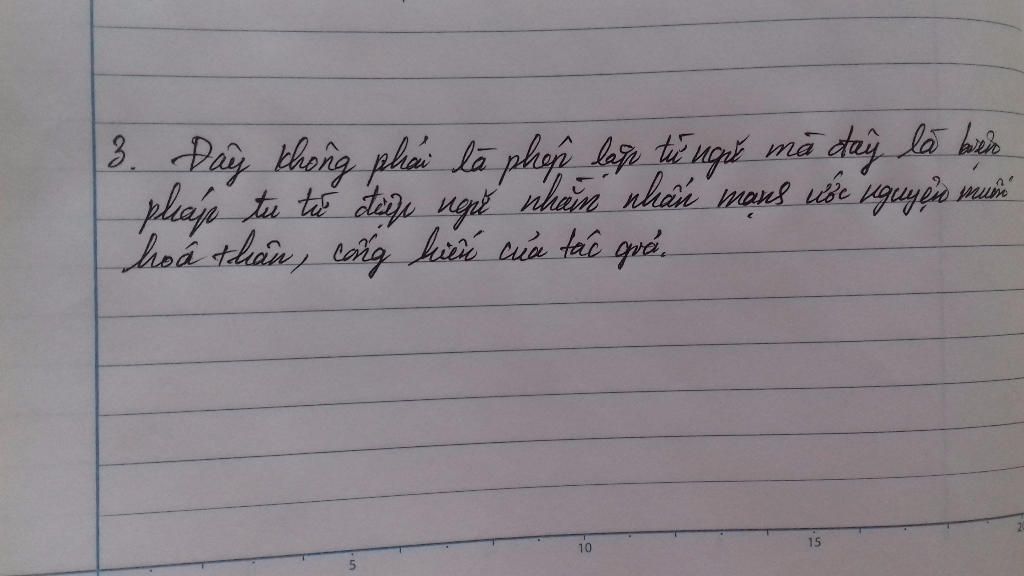 3. Đây không phải là phép lặp từ ngữ mà đây là biện
pháp tu từ điệp ngữ nhằm nhấn mạnh ước nguyện muốn
hoá thân, cống hiến của tác giả.
5 10 15